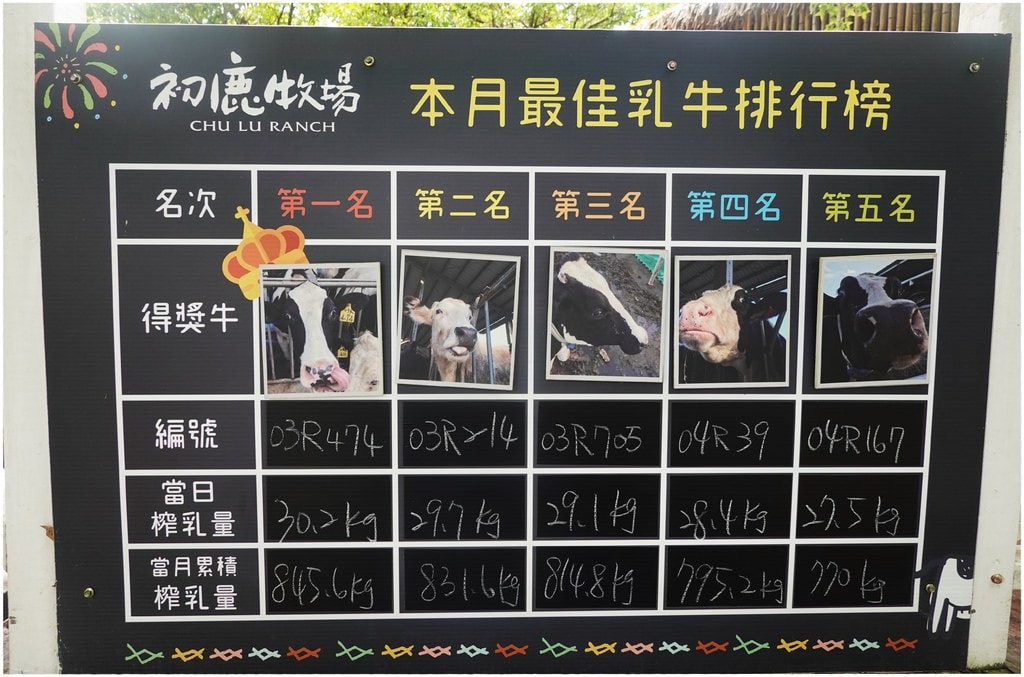 初鹿牧場
CHU LU RANCH
本月最佳乳牛排行榜
名次 第一名 第二名 第三名 第四名 第五名
得獎牛
編號 03R474 03R214 03R705 04R39 04R167
當日
榨乳量 30.2kg 29.7kg 29.1kg 28.4kg 27.5kg
當月累積
榨乳量 845.6kg 831.6kg 814.8kg 795.2kg 770kg